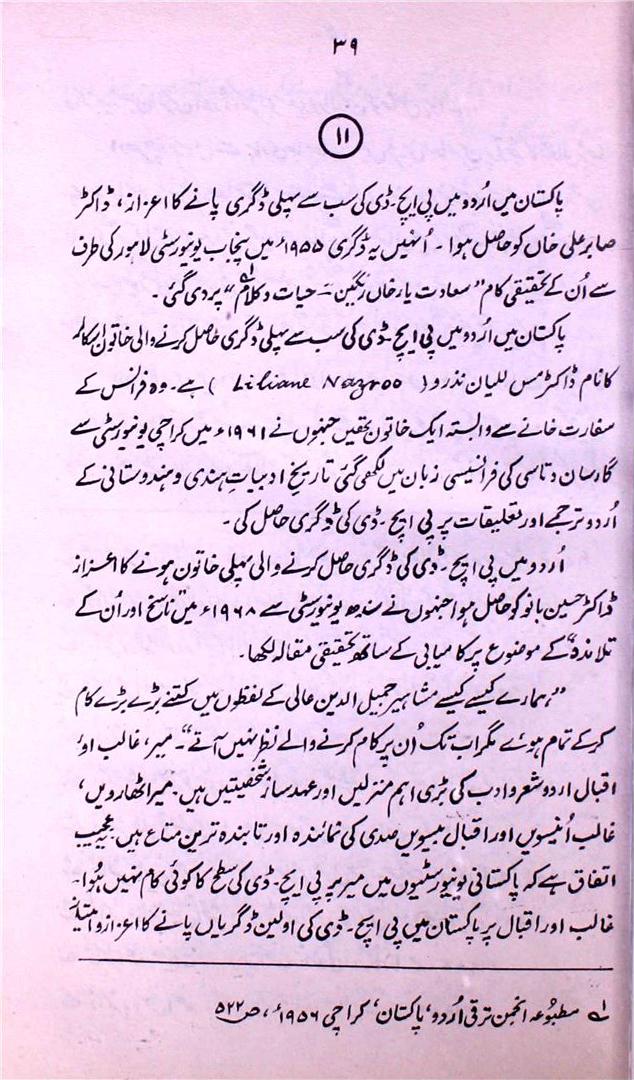 ۳۹
۱۱
پاکستان میں اُردو میں پی ایچ۔ڈی کی سب سے پہلی ڈگری پانے کا اعزاز، ڈاکٹر
صابر علی خاں کو حاصل ہوا۔ اُنہیں یہ ڈگری ۱۹۵۵ء میں پنجاب یونیورسٹی لاہور کی طرف
سے اُن کے تحقیقی کام "سعادت یار خاں رنگین ۔ حیات و کلام" پر دی گئی۔
پاکستان میں اردو میں پی ایچ۔ڈی کی سب سے پہلی ڈگری حاصل کرنے والی خاتون اسکالر
کا نام ڈاکٹر مس للیان نذرو ( Liliane Nazroo ) ہے۔ وہ فرانس کے
سفارت خانے سے وابستہ ایک خاتون تھیں جنہوں نے ۱۹۶۱ء میں کراچی یونیورسٹی سے
گارسان دتاسی کی فرانسیسی زبان میں لکھی گئی تاریخ ادبیاتِ ہندی و ہندوستانی کے
اُردو ترجمے اور تعلیقات پر پی ایچ۔ڈی کی ڈگری حاصل کی۔
اُردو میں پی ایچ۔ڈی کی ڈگری حاصل کرنے والی پہلی خاتون ہونے کا اعزاز
ڈاکٹر حسین بانو کو حاصل ہوا جنہوں نے سندھ یونیورسٹی سے ۱۹۶۸ء میں "ناسخ اور اُن کے
تلامذہ" کے موضوع پر کامیابی کے ساتھ تحقیقی مقالہ لکھا۔
"ہمارے کیسے کیسے مشاہیر جمیل الدین عالی کے لفظوں میں کتنے بڑے بڑے کام
کر کے تمام ہوئے مگر اب تک اُن پر کام کرنے والے نظر نہیں آتے"۔ میر، غالب اور
اقبال اردو شعر و ادب کی بڑی اہم منزلیں اور عہد ساز شخصیتیں ہیں۔ میر اٹھارویں،
غالب اُنیسویں اور اقبال بیسویں صدی کی نمائندہ اور تابندہ ترین متاع ہیں۔ عجیب
اتفاق ہے کہ پاکستانی یونیورسٹیوں میں میر پر پی ایچ۔ڈی کی سطح کا کوئی کام نہیں ہُوا۔
غالب اور اقبال پر پاکستان میں پی ایچ۔ڈی کی اولین ڈگریاں پانے کا اعزاز و امتیاز
۱؎ مطبُوعہ انجمن ترقی اُردو، پاکستان، کراچی ۱۹۵۶ء، ص ۵۲۲